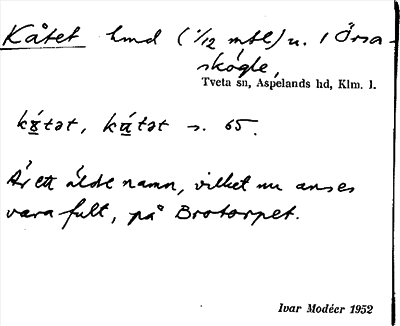 Kåtet hmd (1/12 mtl) u. 1 Örsa-
skógle,
Tveta sn, Aspelands hd, Klm. l.
kátet, s. 65.
Är ett äldre namn, vilket nu anses
vara fult, på Brotorpet.
Ivar Modéer 1952